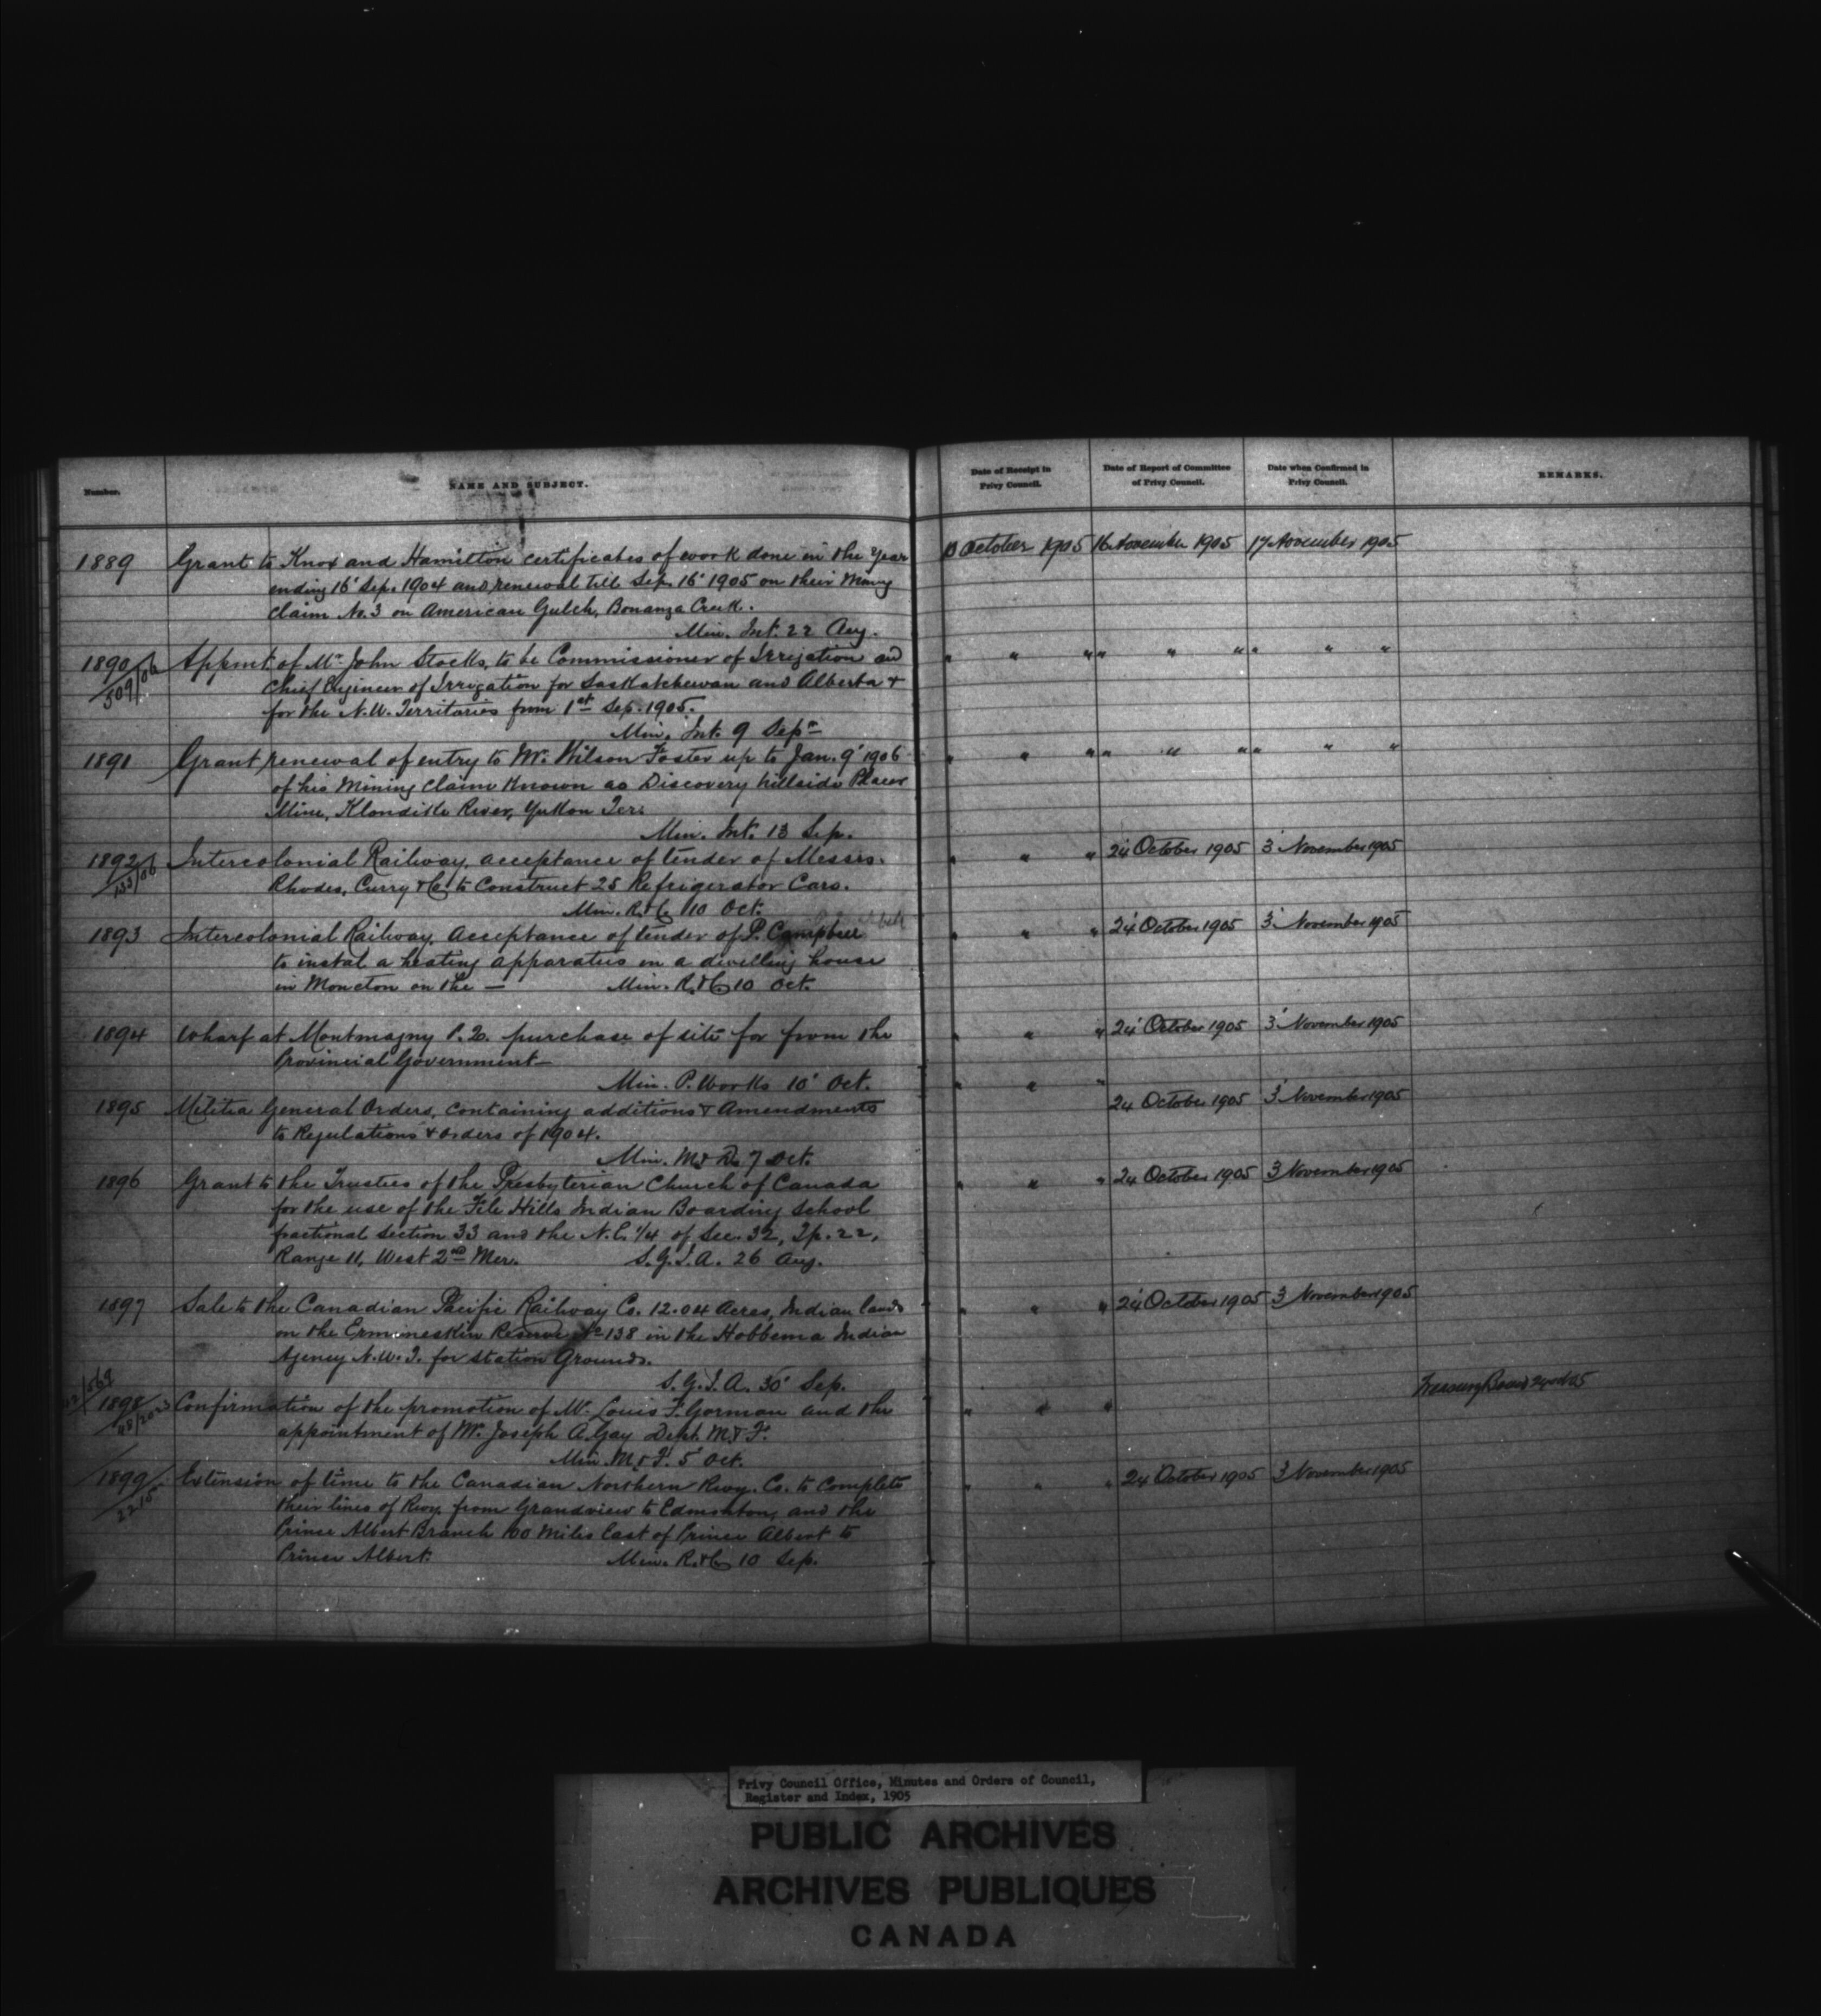 Number.
NAME AND SUBJECT.
Date of Receipt in Privy Council.
Date of Report of Committee of Privy Council.
Date when Confirmed in Privy Council.
REMARKS.
1889 Grant to Knox and Hamilton certificates of work done in the year 10 October 1905 16 November 1905 17 November 1905
ending 16' Sep. 1904 and renewal till Sep. 16' 1905 on their Mining
Claim No. 3 on American Gulch, Bonanza Creek.
Min. Int. 22 Aug.
1890 Appmt. of Mr. John Stocks, to be Commissioner of Irrigation and " " " " " " " " "
509/06 Chief Engineer of Irrigation for Saskatchewan and Alberta &
for the N.W. Territories from 1st Sep. 1905.
Min. Int. 9 Sepr
1891 Grant renewal of entry to Mr. Wilson Foster up to Jan. 9' 1906 " " " " " " " " "
of his Mining Claim known as Discovery hillside Placer
Mine, Klondike River, Yukon Ter:
Min. Int. 13 Sep.
1892 Intercolonial Railway, acceptance of tender of Messrs. " " " 24' October 1905 3' November 1905
133/06 Rhodes, Curry & Co. to Construct 25 Refrigerator Cars.
Min. R. & C. 10 Oct.
1893 Intercolonial Railway, Acceptance of tender of P. Campbell " " " 24' October 1905 3' November 1905
to instal a heating apparatus in a dwelling house
in Moncton on the — Min. R. & C. 10 Oct.
1894 Wharf at Montmagny P.Q. purchase of site for from the " " " 24' October 1905 3' November 1905
Provincial Government—
Min. P. Works 10' Oct. " " "
1895 Militia General Orders, containing additions & Amendments 24 October 1905 3' November 1905
to Regulations & orders of 1904.
Min. M & D. 7 Oct.
1896 Grant to the Trustees of the Presbyterian Church of Canada " " " 24 October 1905 3 November 1905
for the use of the File Hills Indian Boarding School
fractional section 33 and the N.E. 1/4 of Sec. 32, Tp. 22,
Range 11, West 2nd Mer. S.G.I.A. 26 Aug.
1897 Sale to the Canadian Pacific Railway Co. 12.04 Acres, Indian lands " " " 24' October 1905 3 November 1905
on the Ermineskin Reserve No 138 in the Hobbema Indian
Agency N.W.T. for station Grounds.
S.G.I.A. 30' Sep.
1898 Confirmation of the promotion of Mr. Louis F. Gorman and the " " " Treasury Board
appointment of Mr. Joseph A. Gay Dept. M & F.
Min. M & F. 5' Oct.
1899 Extension of time to the Canadian Northern Rwy. Co. to complete " " " 24 October 1905 3 November 1905
2215 their lines of Rwy. from Grandview to Edmonton, and the
Prince Albert Branch 100 miles East of Prince Albert to
Prince Albert. Min. R. & C. 10 Sep.
Privy Council Office, Minutes and Orders of Council,
Register and Index, 1905
PUBLIC ARCHIVES
ARCHIVES PUBLIQUES
CANADA